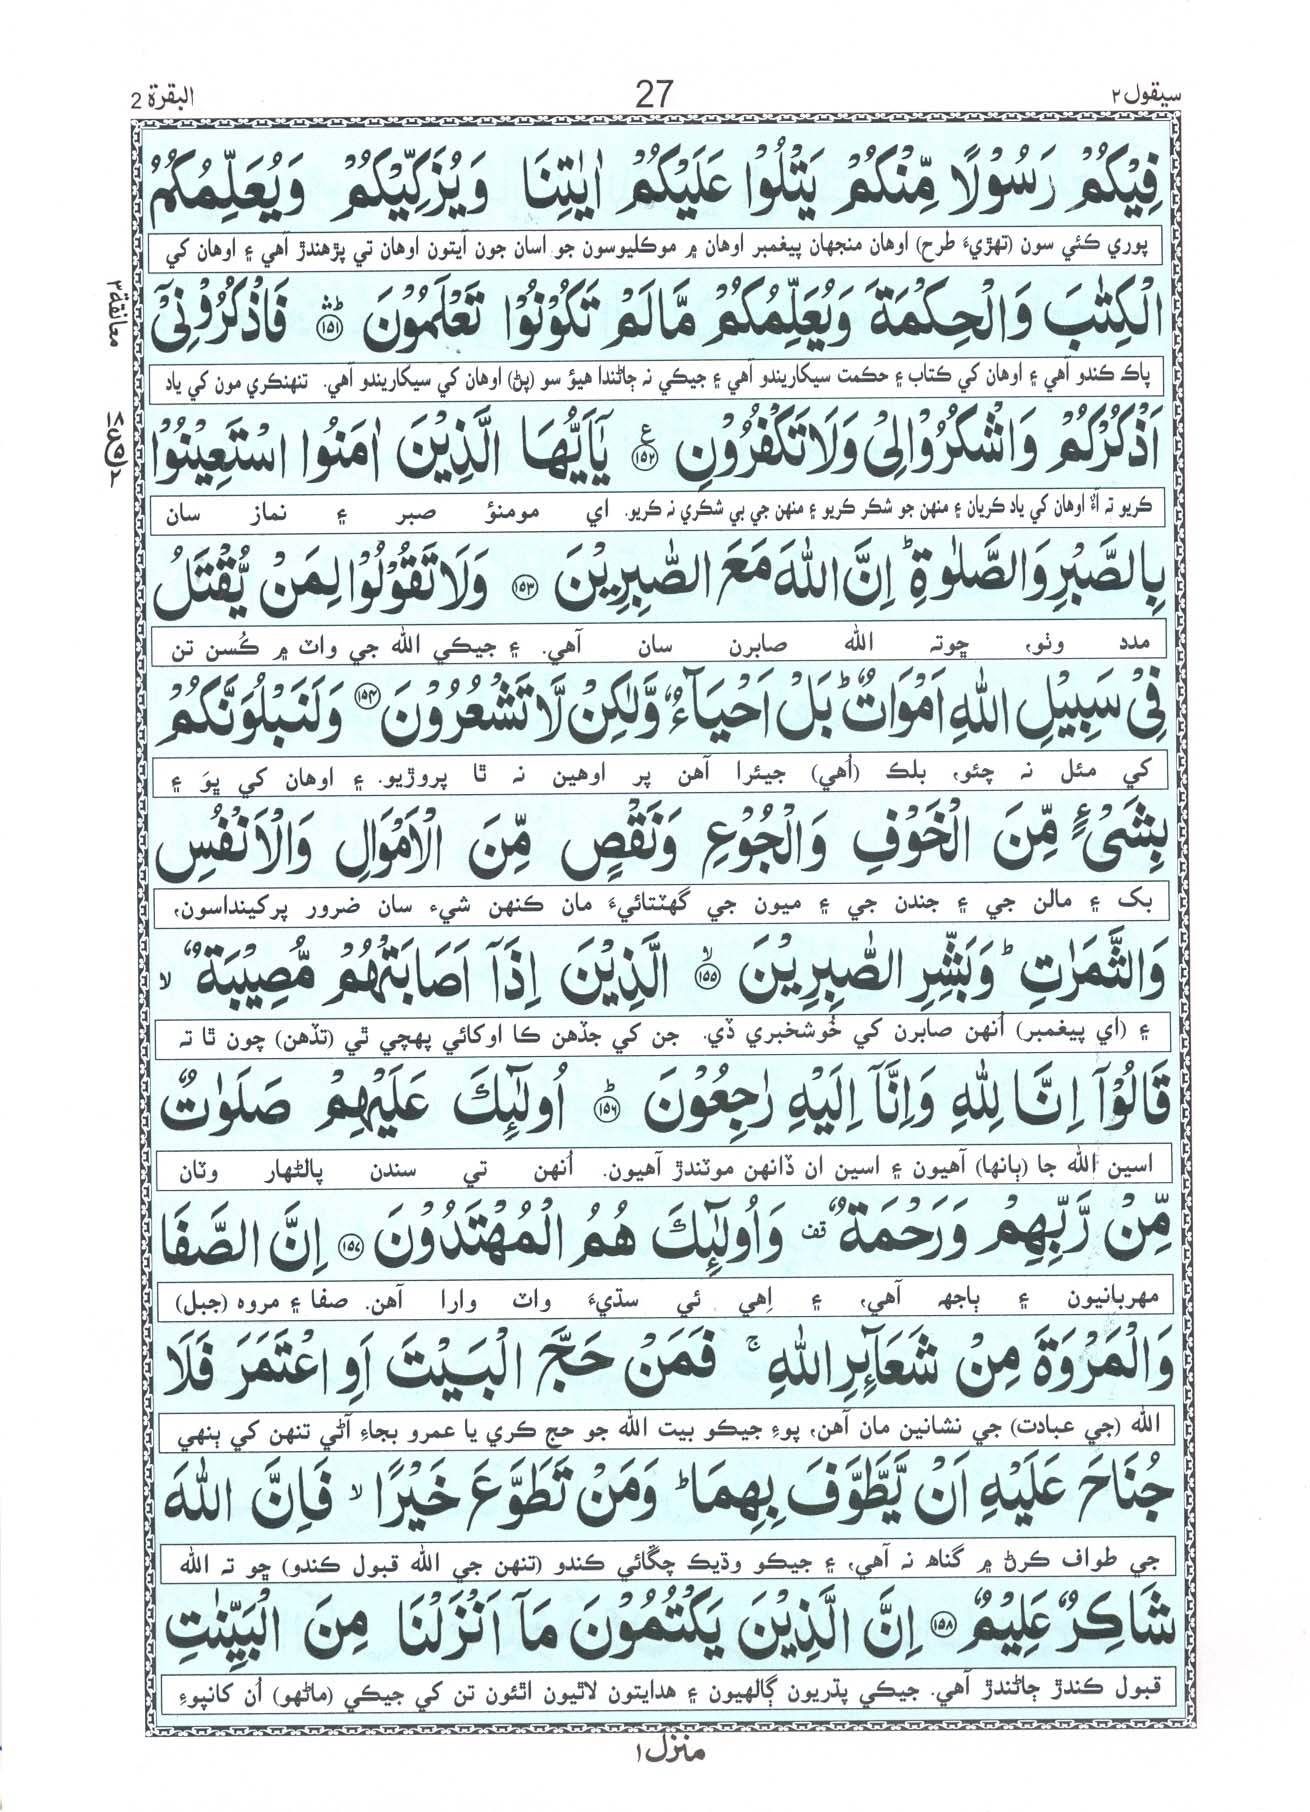 سيقول ٢
27
البقرة 2
فِيْكُمْ رَسُوْلًا مِّنْكُمْ يَتْلُوْا عَلَيْكُمْ اٰيٰتِنَا وَيُزَكِّيْكُمْ وَيُعَلِّمُكُمُ
پوري ڪئي سون (تهڙيءَ طرح) اوهان منجهان پيغمبر اوهان ۾ موڪليوسون جو اسان جون آيتون اوهان تي پڙهندڙ آهي ۽ اوهان کي
الْكِتٰبَ وَالْحِكْمَةَ وَيُعَلِّمُكُمْ مَّا لَمْ تَكُوْنُوْا تَعْلَمُوْنَ ۛؕ ﴿۱۵۱﴾ فَاذْكُرُوْنِيْۤ
معانقة ٣
پاڪ ڪندو آهي ۽ اوهان کي ڪتاب ۽ حڪمت سيکاريندو آهي ۽ جيڪي نہ ڄاڻندا هيؤ سو (پڻ) اوهان کي سيکاريندو آهي. تنهنڪري مون کي ياد
اَذْكُرْكُمْ وَاشْكُرُوْا لِيْ وَلَا تَكْفُرُوْنِ ﴿۱۵۲﴾ ع يٰۤاَيُّهَا الَّذِيْنَ اٰمَنُوا اسْتَعِيْنُوْا
١٨ ع ٥ ٢
ڪريو تہ آءٌ اوهان کي ياد ڪريان ۽ منهن جو شڪر ڪريو ۽ منهن جي بي شڪري نہ ڪريو. اي مومنؤ صبر ۽ نماز سان
بِالصَّبْرِ وَالصَّلٰوةِ ؕ اِنَّ اللّٰهَ مَعَ الصّٰبِرِيْنَ ﴿۱۵۳﴾ وَلَا تَقُوْلُوْا لِمَنْ يُّقْتَلُ
مدد وٺو، ڇوتہ الله صابرن سان آهي. ۽ جيڪي الله جي واٽ ۾ ڪُسن تن
فِيْ سَبِيْلِ اللّٰهِ اَمْوَاتٌ ؕ بَلْ اَحْيَآءٌ وَّلٰكِنْ لَّا تَشْعُرُوْنَ ﴿۱۵۴﴾ وَلَنَبْلُوَنَّكُمْ
کي مئل نہ چئو، بلڪ (اُهي) جيئرا آهن پر اوهين نہ ٿا پروڙيو. ۽ اوهان کي ڀوَ ۽
بِشَيْءٍ مِّنَ الْخَوْفِ وَالْجُوْعِ وَنَقْصٍ مِّنَ الْاَمْوَالِ وَالْاَنْفُسِ
بک ۽ مالن جي ۽ جندن جي ۽ ميون جي گهٽتائيءَ مان ڪنهن شيء سان ضرور پرکينداسون،
وَالثَّمَرٰتِ ؕ وَبَشِّرِ الصّٰبِرِيْنَ ۙ ﴿۱۵۵﴾ الَّذِيْنَ اِذَاۤ اَصَابَتْهُمْ مُّصِيْبَةٌ ۙ
۽ (اي پيغمبر) اُنهن صابرن کي خُوشخبري ڏي. جن کي جڏهن ڪا اوکائي پهچي ٿي (تڏهن) چون ٿا تہ
قَالُوْۤا اِنَّا لِلّٰهِ وَاِنَّاۤ اِلَيْهِ رٰجِعُوْنَ ؕ ﴿۱۵۶﴾ اُولٰٓئِكَ عَلَيْهِمْ صَلَوٰتٌ
اسين الله جا (ٻانها) آهيون ۽ اسين ان ڏانهن موٽندڙ آهيون. اُنهن تي سندن پالڻهار وٽان
مِّنْ رَّبِّهِمْ وَرَحْمَةٌ ۟قف وَاُولٰٓئِكَ هُمُ الْمُهْتَدُوْنَ ﴿۱۵۷﴾ اِنَّ الصَّفَا
مهربانيون ۽ ٻاجهہ آهي، ۽ اِهي ئي سڌيءَ واٽ وارا آهن. صفا ۽ مروه (جبل)
وَالْمَرْوَةَ مِنْ شَعَآئِرِ اللّٰهِ ۚ فَمَنْ حَجَّ الْبَيْتَ اَوِ اعْتَمَرَ فَلَا
الله (جي عبادت) جي نشانين مان آهن، پوءِ جيڪو بيت الله جو حج ڪري يا عمرو بجاءِ آڻي تنهن کي ٻنهي
جُنَاحَ عَلَيْهِ اَنْ يَّطَّوَّفَ بِهِمَا ؕ وَمَنْ تَطَوَّعَ خَيْرًا ۙ فَاِنَّ اللّٰهَ
جي طواف ڪرڻ ۾ گناھ نہ آهي، ۽ جيڪو وڌيڪ چڱائي ڪندو (تنهن جي الله قبول ڪندو) ڇو تہ الله
شَاكِرٌ عَلِيْمٌ ﴿۱۵۸﴾ اِنَّ الَّذِيْنَ يَكْتُمُوْنَ مَاۤ اَنْزَلْنَا مِنَ الْبَيِّنٰتِ
قبول ڪندڙ ڄاڻندڙ آهي. جيڪي پڌريون ڳالهيون ۽ هدايتون لاٿيون اٿئون تن کي جيڪي (ماڻهو) اُن کانپوءِ
منزل ١